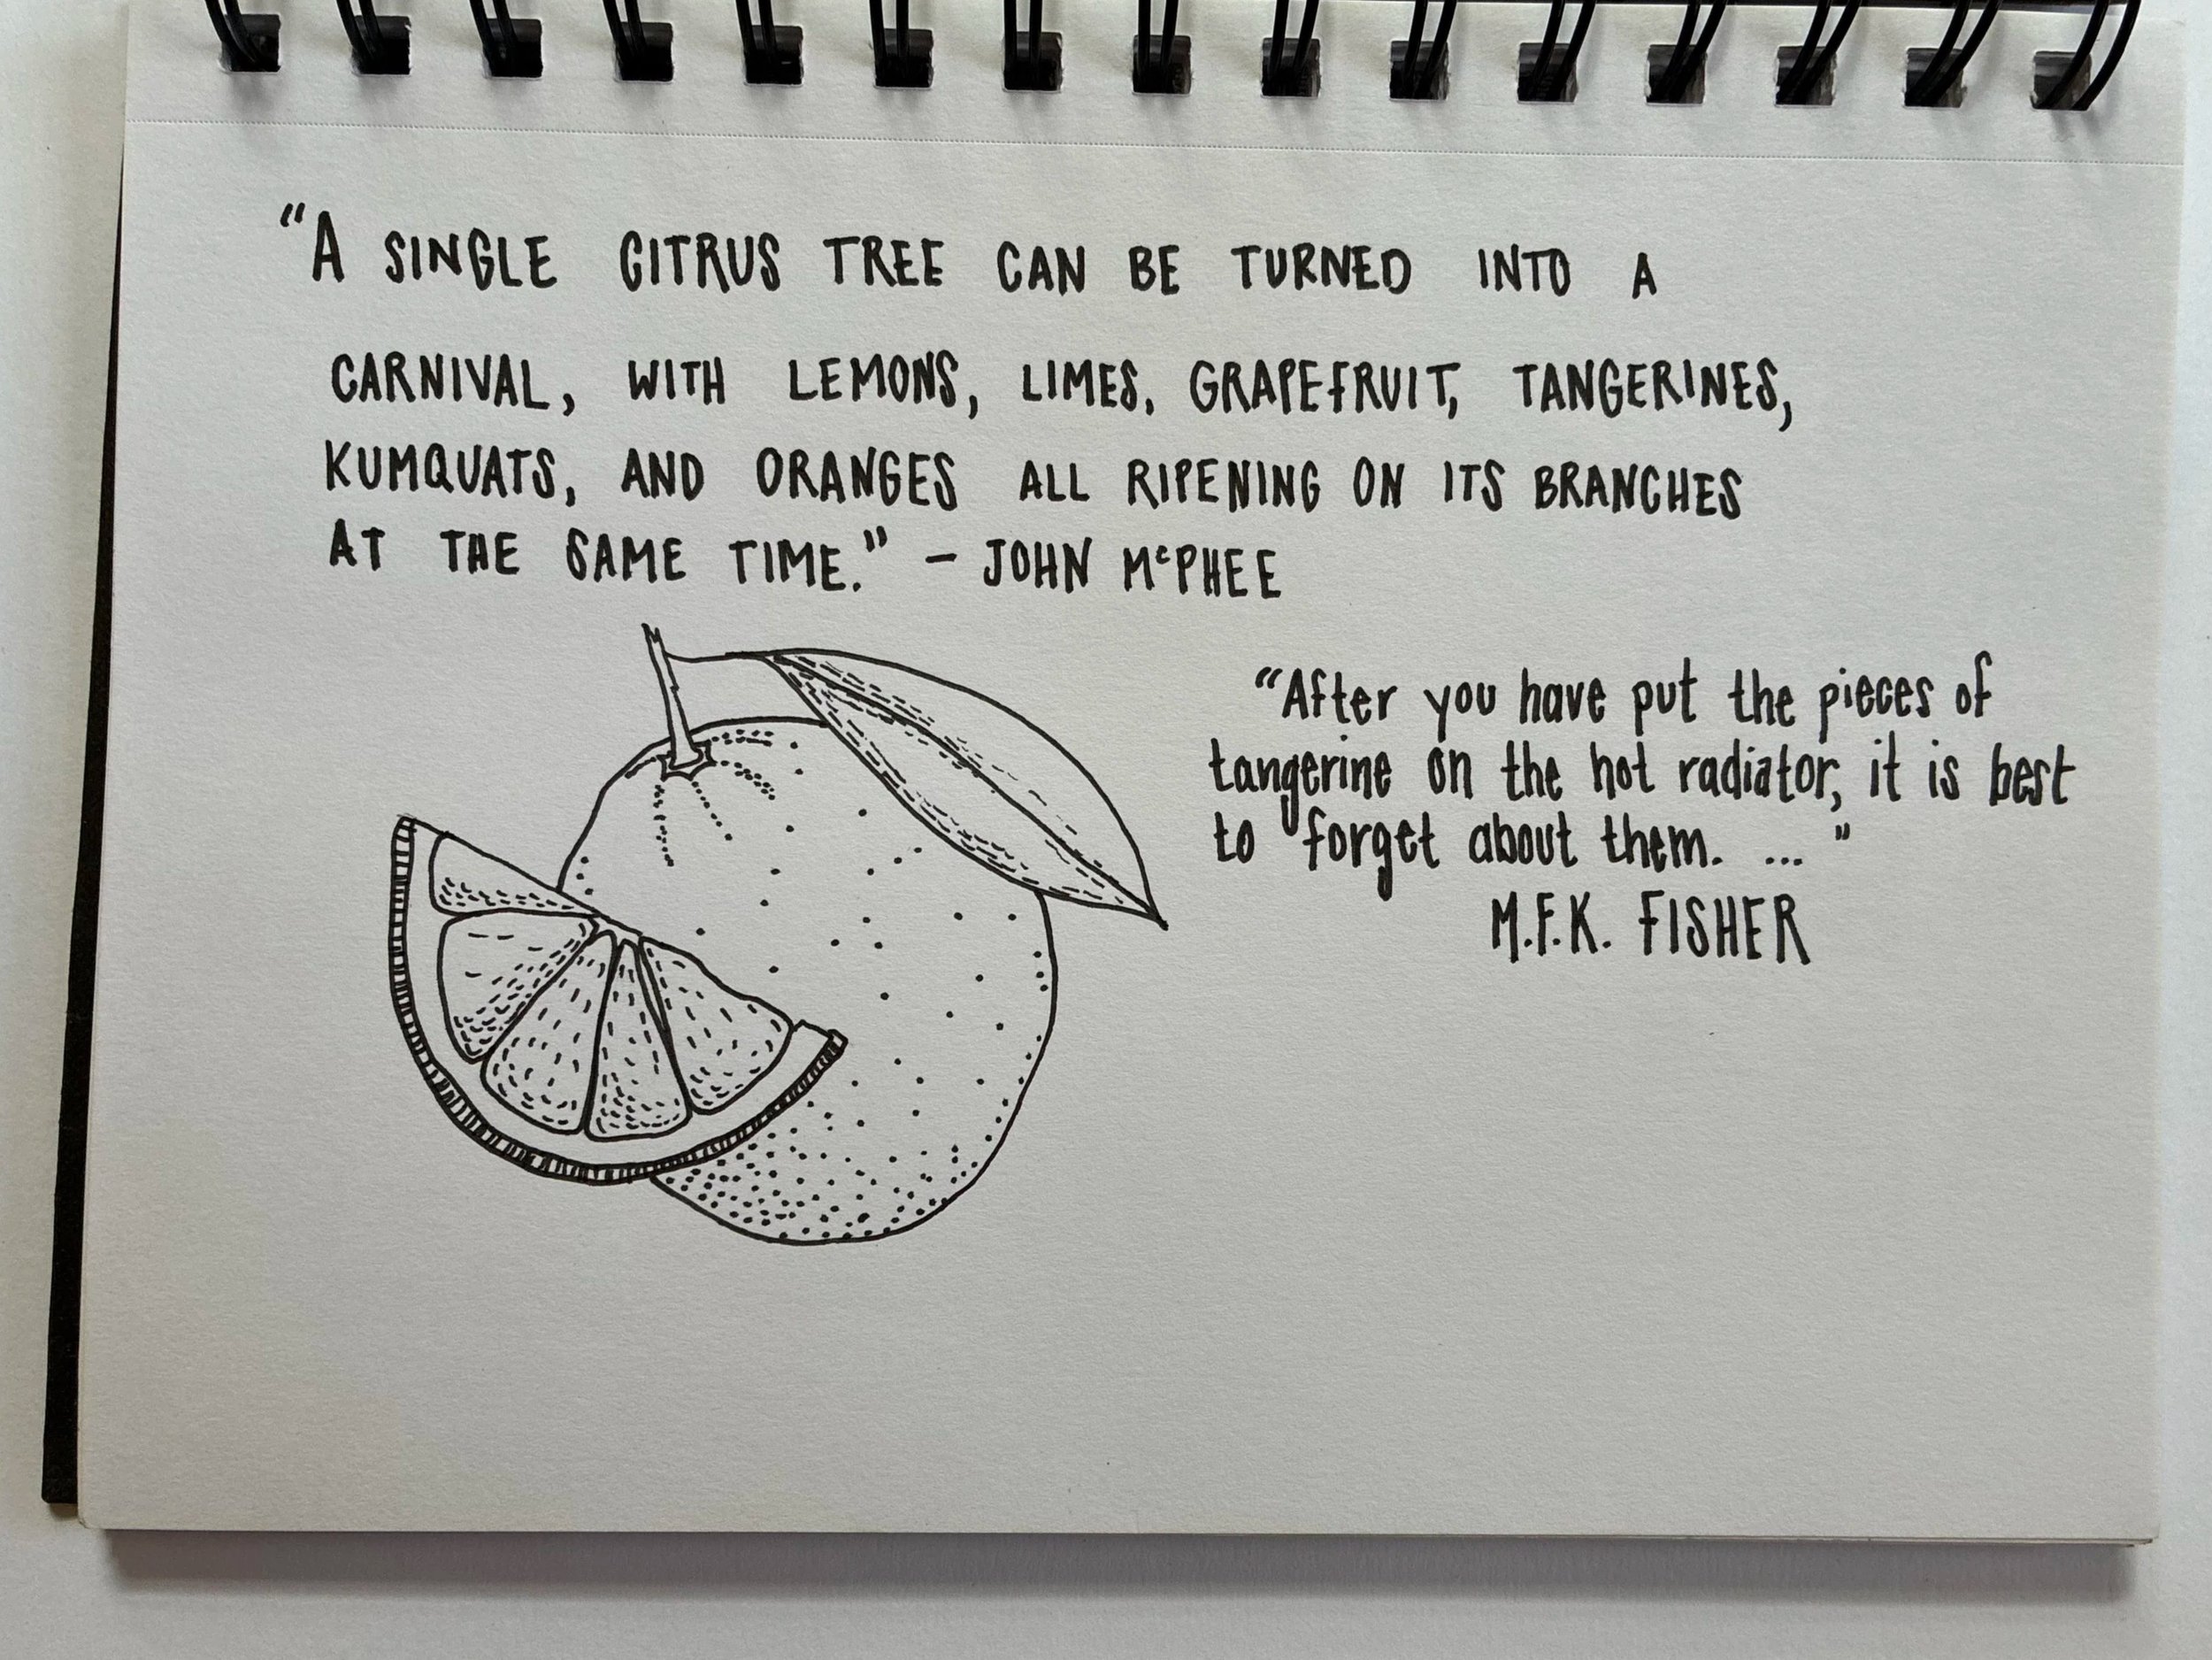 “A SINGLE CITRUS TREE CAN BE TURNED INTO A
CARNIVAL, WITH LEMONS, LIMES, GRAPEFRUIT, TANGERINES,
KUMQUATS, AND ORANGES ALL RIPENING ON ITS BRANCHES
AT THE SAME TIME.” – JOHN McPHEE
“After you have put the pieces of
tangerine on the hot radiator, it is best
to forget about them. ... ”
M.F.K. FISHER